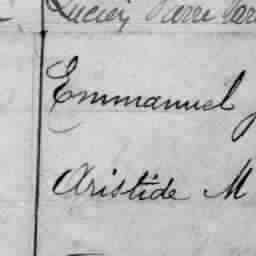 Lucien Pierre
Emmanuel
Aristide M